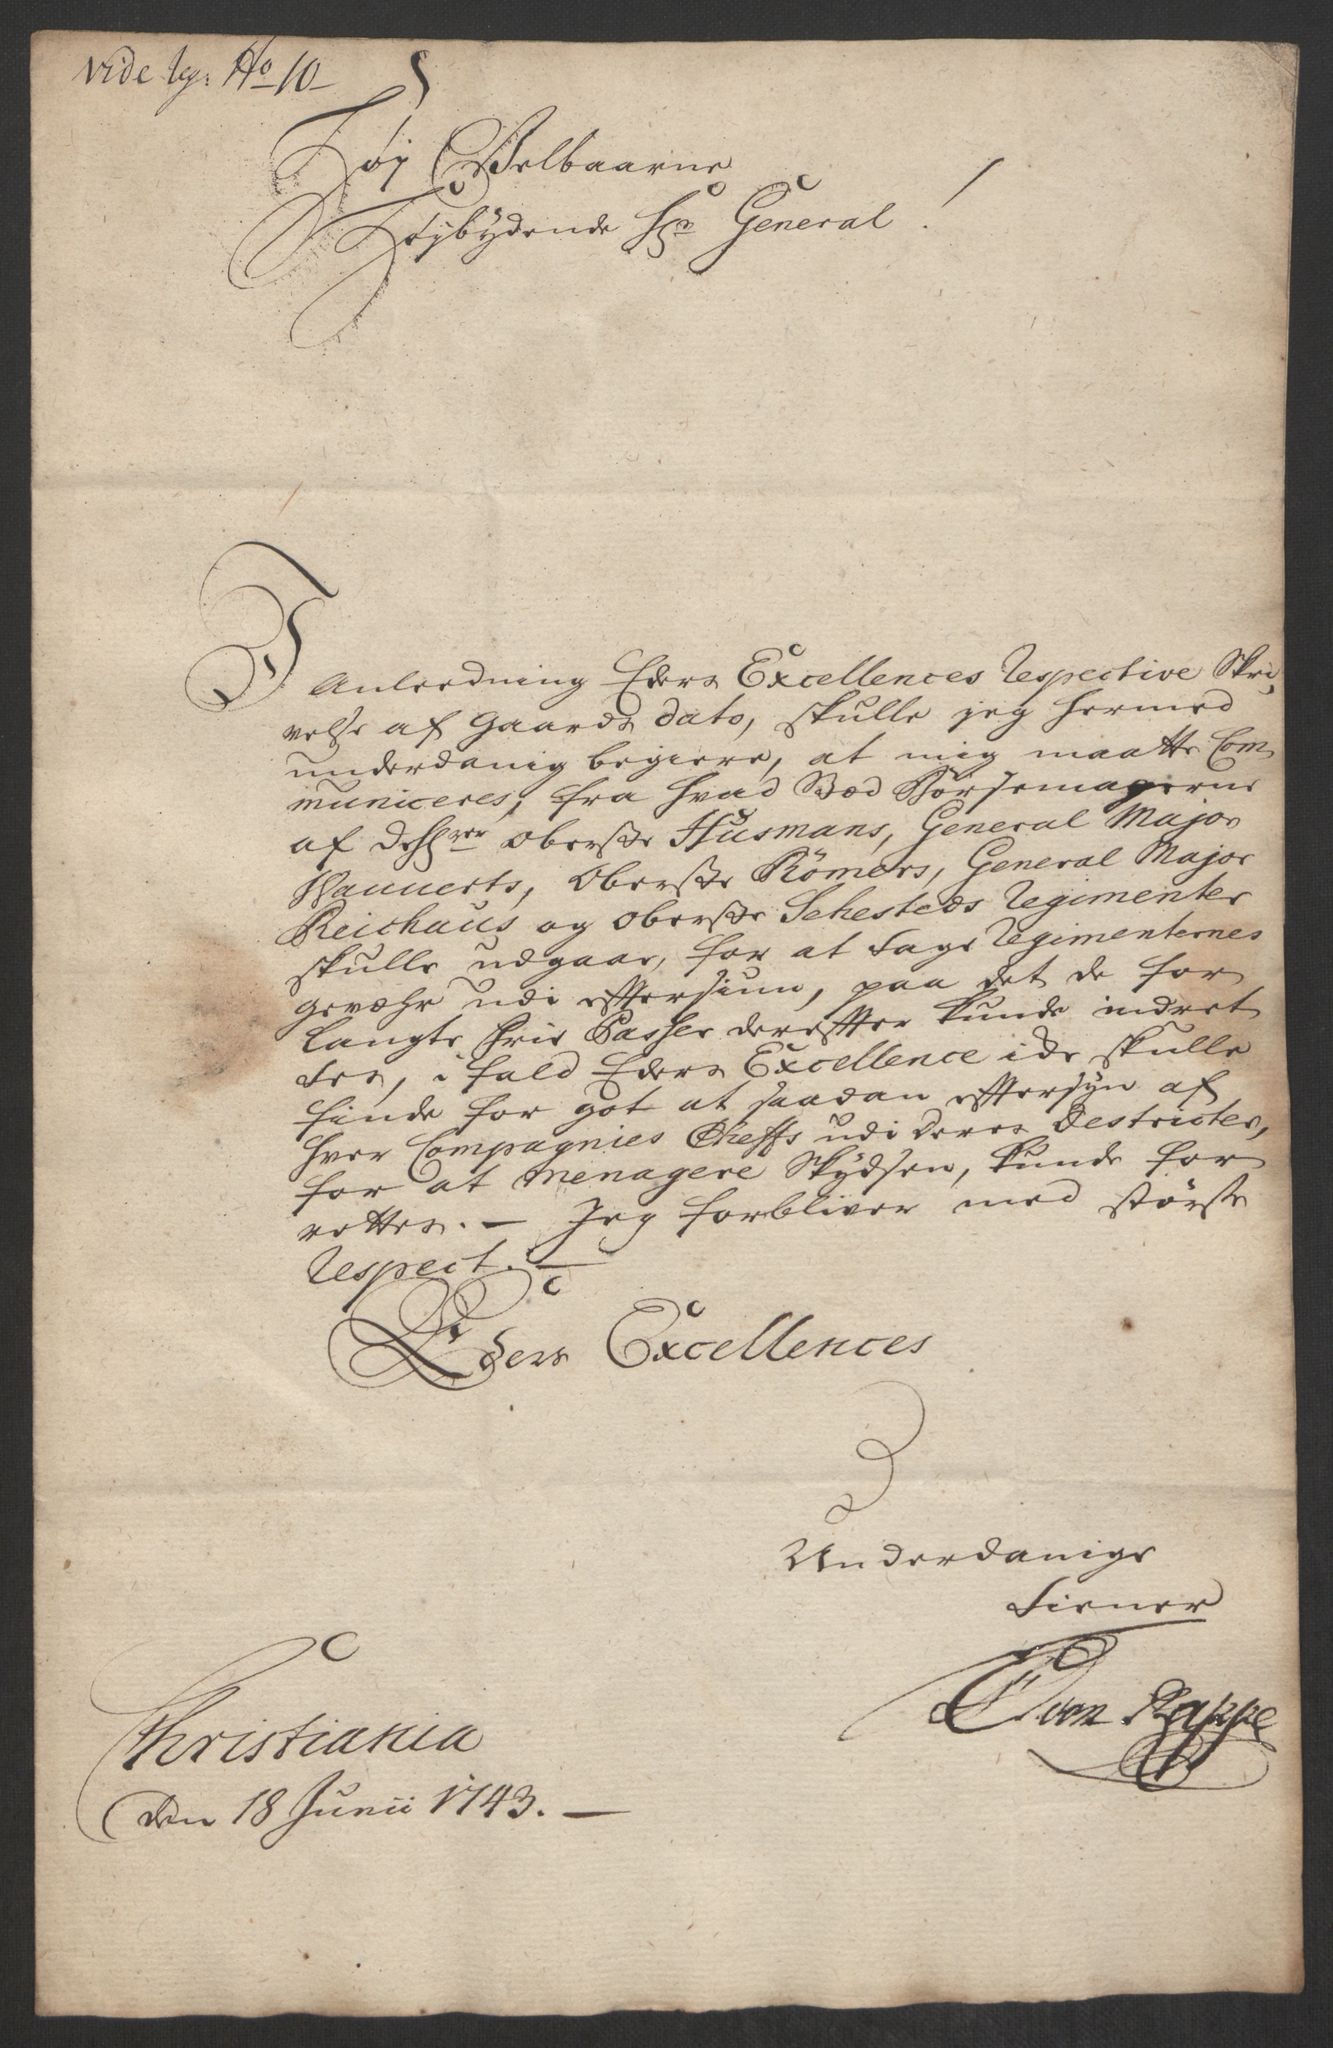 vide lg: No 10
Høy Velbaarne
Høybydende Hr General!
I Anleedning Eders Excellences Respective Skri
velse af Gaards dato, skulle jeg hermed
underdanig begiere, at mig maatte Com
municeres, fra hvad Sted Börsemagerne
af de Hrer Oberste Husmans, General Major
Oberste Römers, General Major
Reichaus og Oberste Sehesteds Regimenter
skulle udgaae, for at tage Regimenternes
gevæhr udi efftersiun, paa det de for
langte frie Passer derefter kunde indret
tes, i fald Eders Excellence icke skulle
finde for got at saadan efftersyn af
hver Compagnies Cheffs udi deres Destricter,
for at menagere Skydsen, kunde for
rettes. — Jeg forbliver med störste
Respect. —
Eders Excellences
Underdanige
tiener
von Rappe
Christiania
den 18 Junii 1743. —